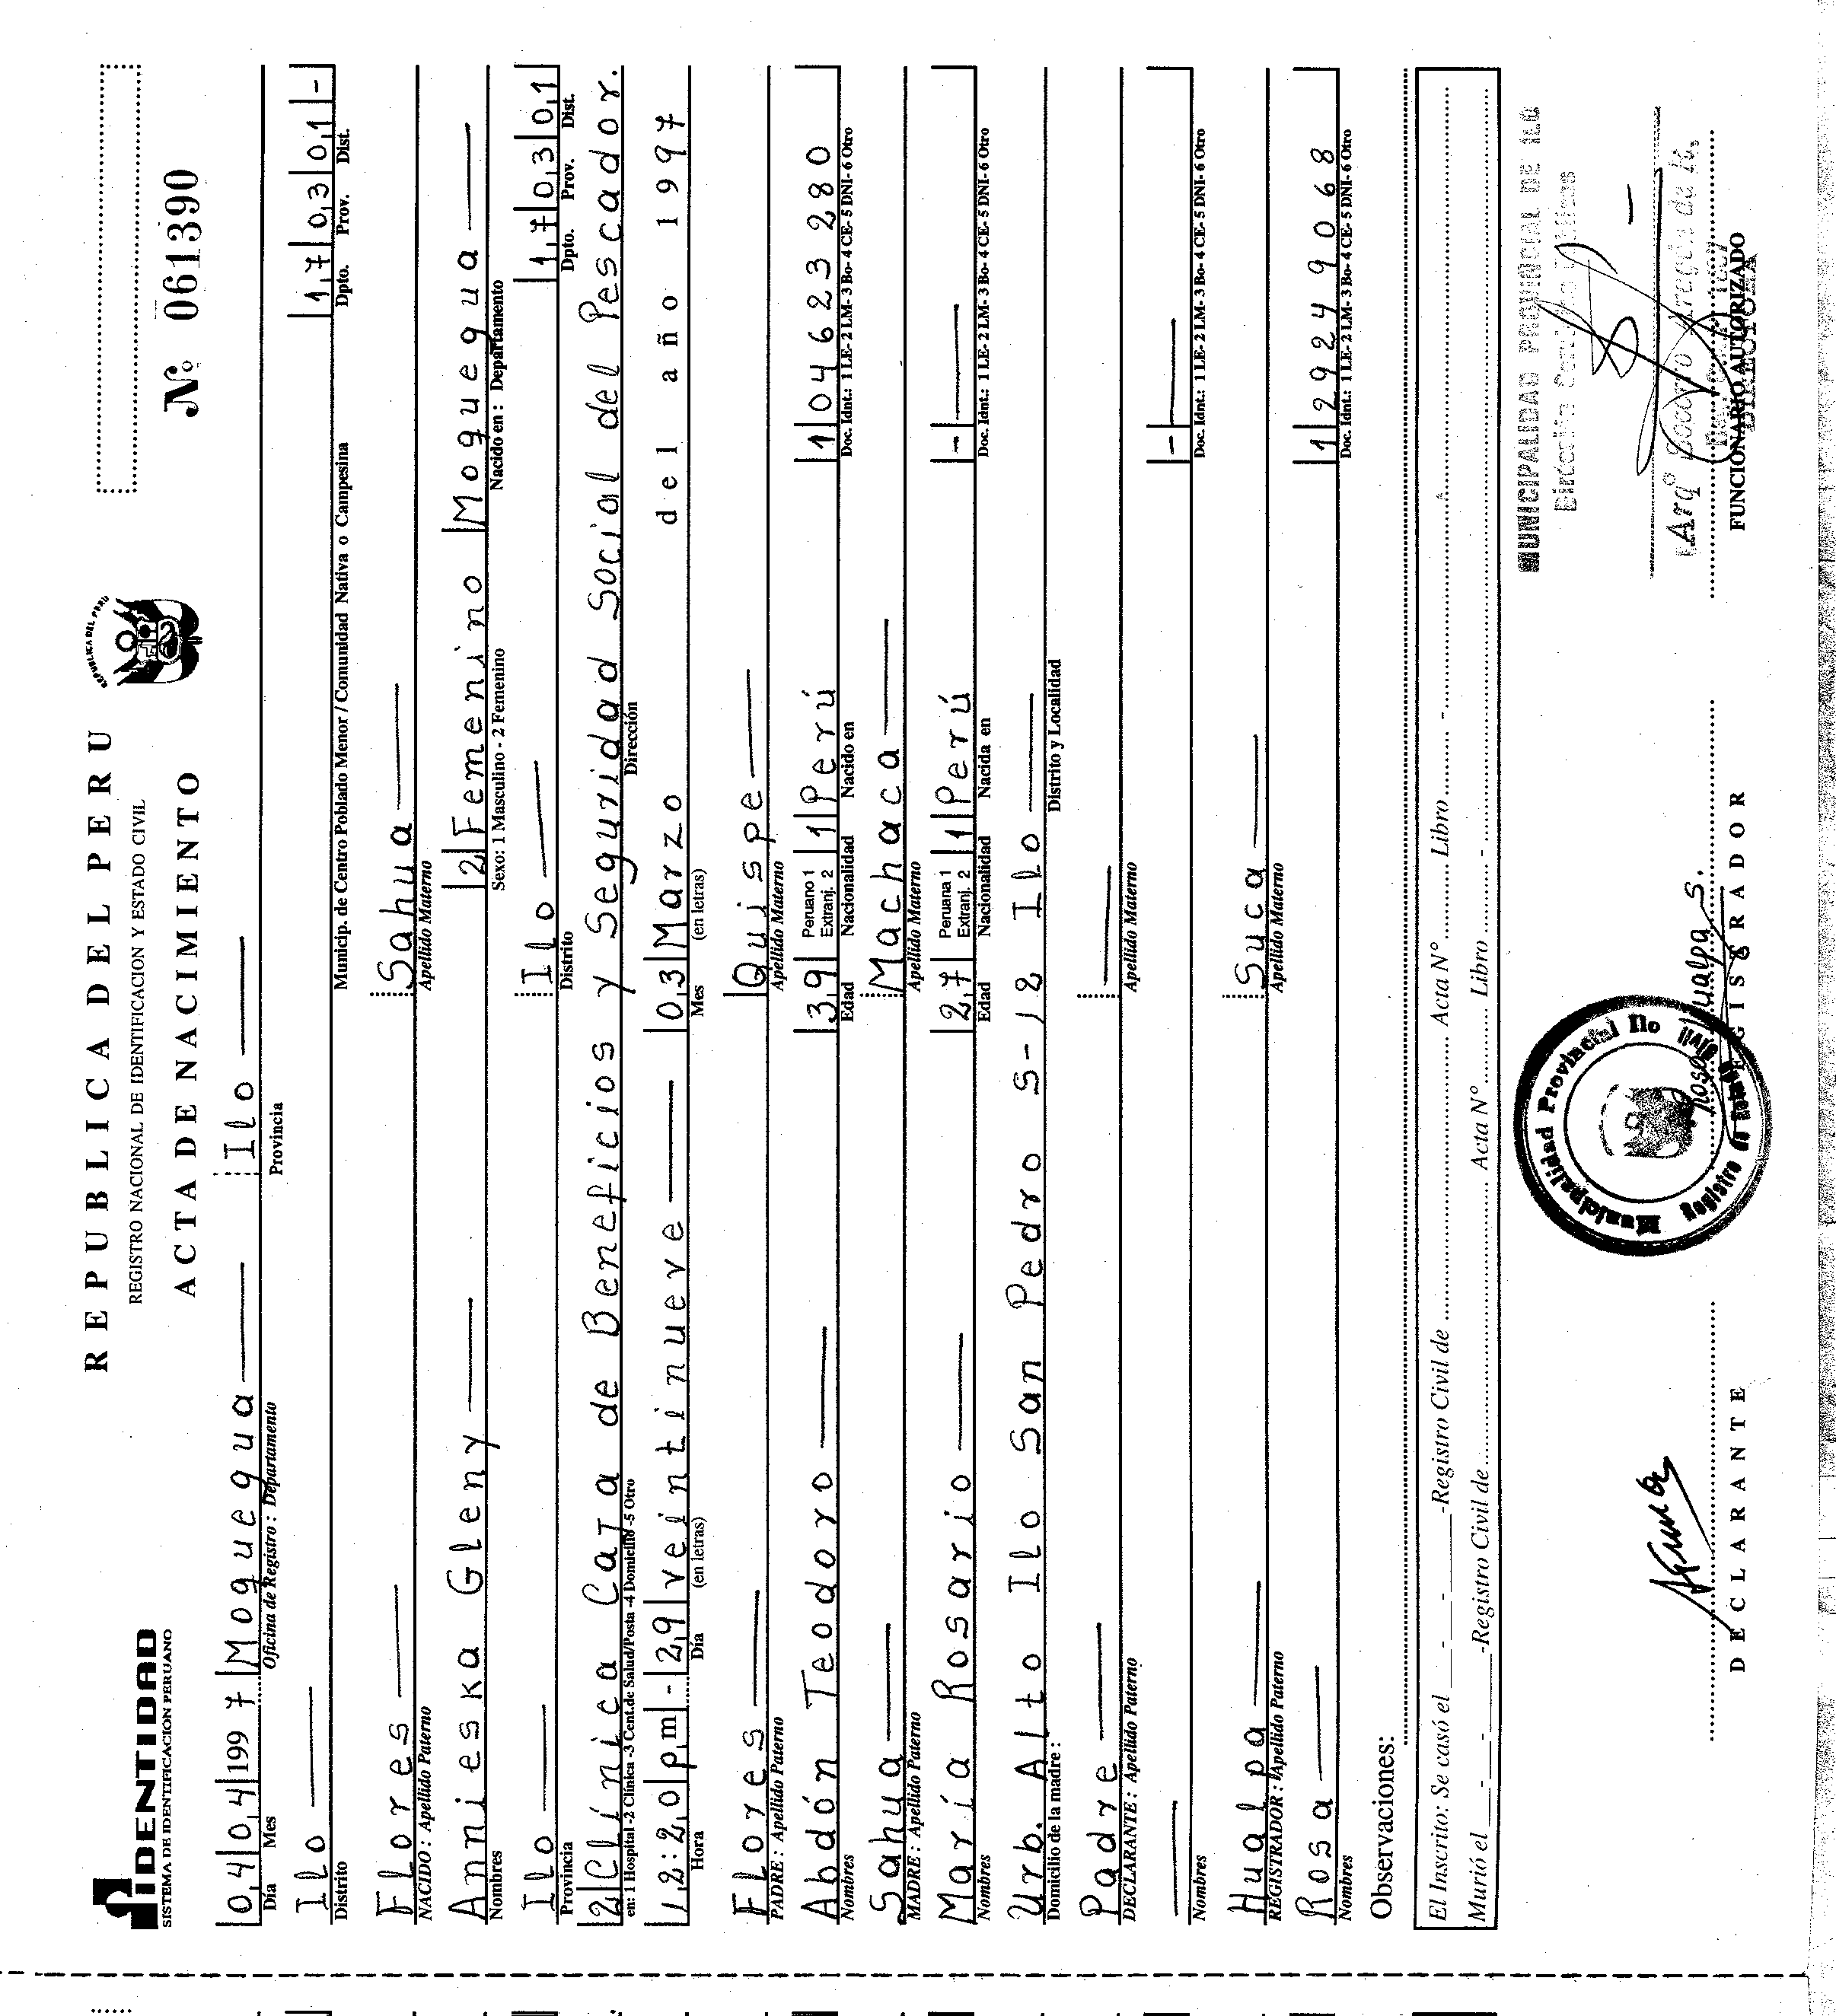 IDENTIDAD
SISTEMA DE IDENTIFICACION PERUANO
REPUBLICA DEL PERU
REPUBLICA DEL PERU
REGISTRO NACIONAL DE IDENTIFICACION Y ESTADO CIVIL
ACTA DE NACIMIENTO
Nº 061390
04 04 1997 Moquegua Ilo
Día Mes Oficina de Registro : Departamento Provincia
Ilo 17 03 01 -
Distrito Municip. de Centro Poblado Menor / Comunidad Nativa o Campesina Dpto. Prov. Dist.
Flores Sahua
NACIDO : Apellido Paterno Apellido Materno
Annieska Gleny 2 Femenino Moquegua
Nombres Sexo: 1 Masculino - 2 Femenino Nacido en : Departamento
Ilo Ilo 17 03 01
Provincia Distrito Dpto. Prov. Dist.
2 Clínica Caja de Beneficios y Seguridad Social del Pescador.
en: 1 Hospital -2 Clínica -3 Cent.de Salud/Posta -4 Domicilio -5 Otro Dirección
12:20 pm - 29 veintinueve 03 Marzo del año 1997
Hora Día (en letras) Mes (en letras)
Flores Quispe
PADRE : Apellido Paterno Apellido Materno
Abdón Teodoro 39 Peruano 1 Extranj. 2 1 Perú 1 04623280
Nombres Edad Nacionalidad Nacido en Doc. Idnt.: 1 LE- 2 LM- 3 Bo- 4 CE- 5 DNI- 6 Otro
Sahua Machaca
MADRE : Apellido Paterno Apellido Materno
María Rosario 27 Peruana 1 Extranj. 2 1 Perú -
Nombres Edad Nacionalidad Nacida en Doc. Idnt.: 1 LE- 2 LM- 3 Bo- 4 CE- 5 DNI- 6 Otro
Urb. Alto Ilo San Pedro S-12 Ilo
Domicilio de la madre : Distrito y Localidad
Padre
DECLARANTE : Apellido Paterno Apellido Materno
-
Nombres Doc. Idnt.: 1 LE- 2 LM- 3 Bo- 4 CE- 5 DNI- 6 Otro
Hualpa Suca
REGISTRADOR : Apellido Paterno Apellido Materno
Rosa 1 29249068
Nombres Doc. Idnt.: 1 LE- 2 LM- 3 Bo- 4 CE- 5 DNI- 6 Otro
Observaciones:
El Inscrito: Se casó el - - -Registro Civil de Acta N° Libro -
Murió el - - -Registro Civil de Acta N° Libro -
MUNICIPALIDAD PROVINCIAL DE ILO
Municipalidad Provincial Ilo
Registro
Rosa Hualpa S.
Arqº
DECLARANTE
REGISTRADOR
FUNCIONARIO AUTORIZADO